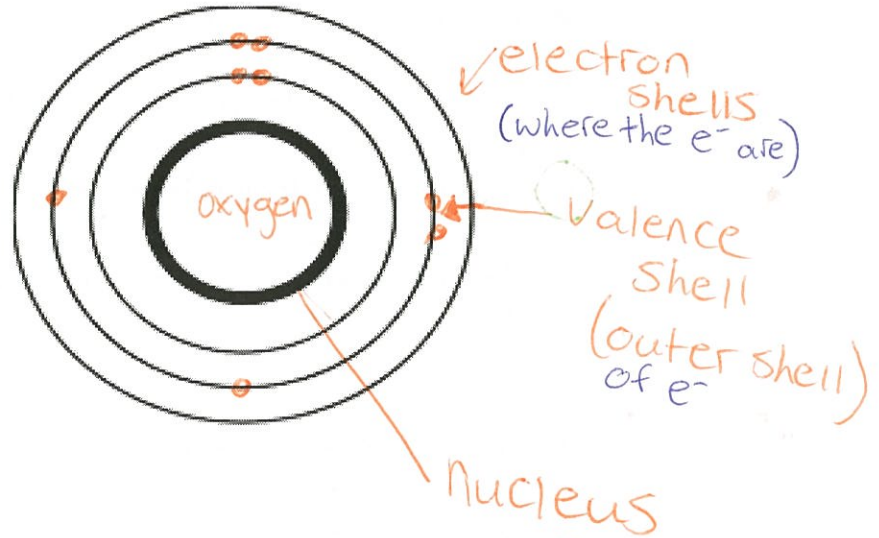 electron
shells
(where the e⁻ are)
oxygen
Valence
Shell
(outer shell)
of e⁻
nucleus